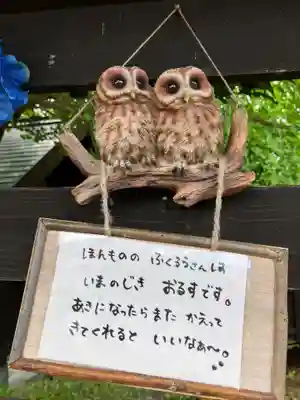 ほんものの ふくろうさんしあ
いまのじき おるすです。
あきになったらまた かえって
きてくれると いいなぁ〜。